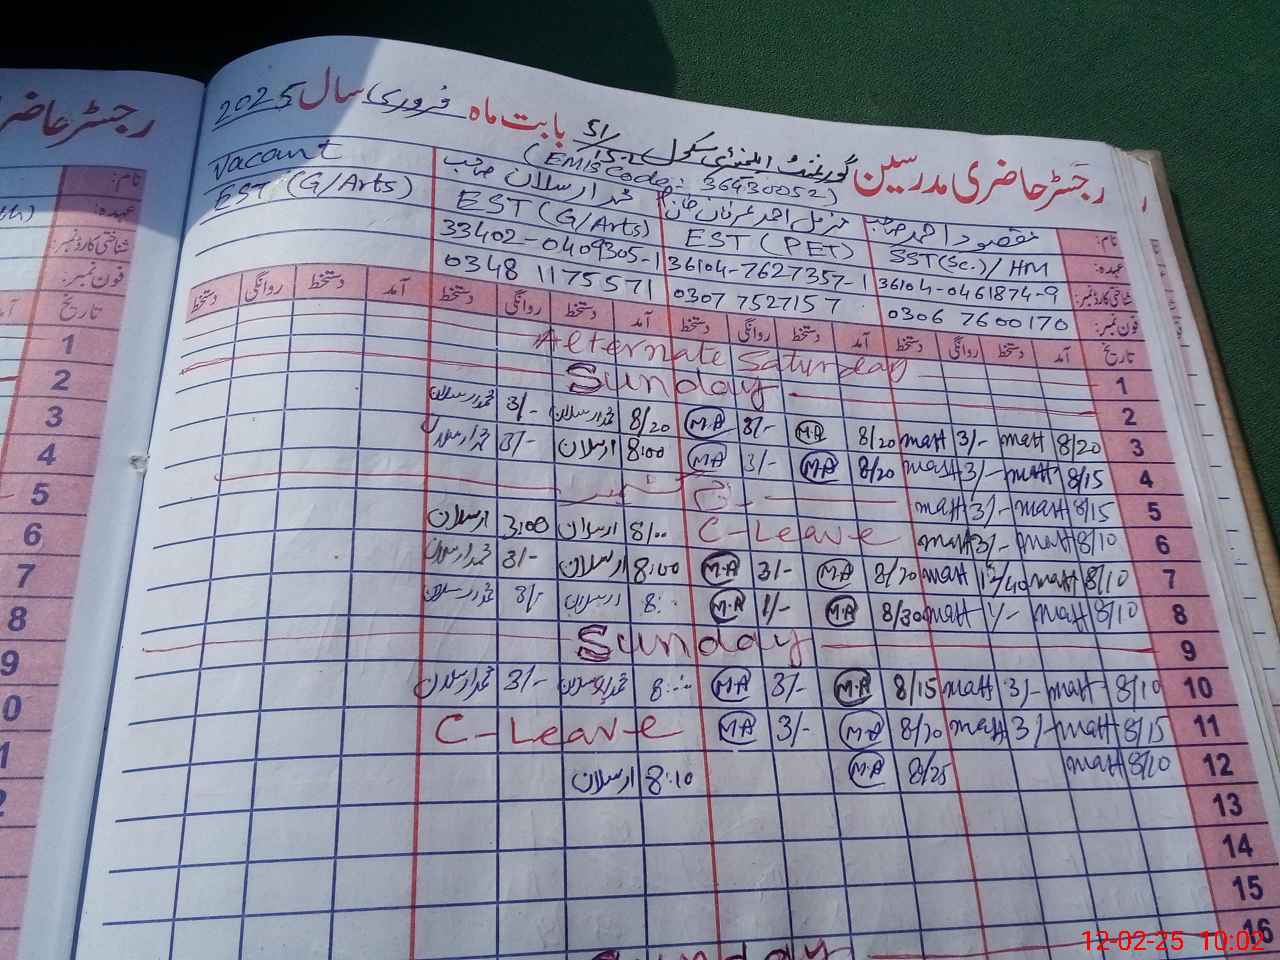 رجسٹر حاضری مدرسین گورنمنٹ ایلیمنٹری سکول 51/15-L بابت ماہ فروری سال 2025
(EMIS Code: 36430052)
نام: مقصود احمد صاحب محمد ارسلان صاحب Vacant
عہدہ: SST(Sc.)/HM EST (PET) EST (G/Arts) EST (G/Arts)
شناختی کارڈ نمبر: 36104-0461874-9 36104-7627357-1 33402-0409305-1
فون نمبر: 0306 7600170 0307 7527157 0348 1175571
تاریخ آمد دستخط روانگی دستخط آمد دستخط روانگی دستخط آمد دستخط روانگی دستخط آمد دستخط روانگی دستخط
1 Alternate Saturday
2 Sunday
3 8/20 3/- 8/20 M.A 3/- M.A 8/20 ارسلان 3/- محمد ارسلان
4 8/15 3/- 8/20 M.A 3/- M.A 8:00 ارسلان 3/- محمد ارسلان
5 8/15 3/-
6 8/10 3/- C-Leave 8/.. ارسلان 3:00 ارسلان
7 8/10 12/40 8/20 M.A 3/- M.A 8:00 ارسلان 3/- محمد ارسلان
8 8/10 1/- 8/30 M.A 1/- M.A 8:.. ارسلان 3/- محمد ارسلان
9 Sunday
10 8/10 3/- 8/15 M.A 3/- M.A 8:.. محمد ارسلان 3/- محمد ارسلان
11 8/15 3/- 8/20 M.A 3/- M.A C-Leave
12 8/10 8/25 M.A 8:10 ارسلان
13
14
15
16 Sunday
رجسٹر حاضری
نام:
عہدہ:
شناختی کارڈ نمبر:
فون نمبر:
تاریخ
1
2
3
4
5
6
7
8
9
0
1
2
12-02-25 10:02